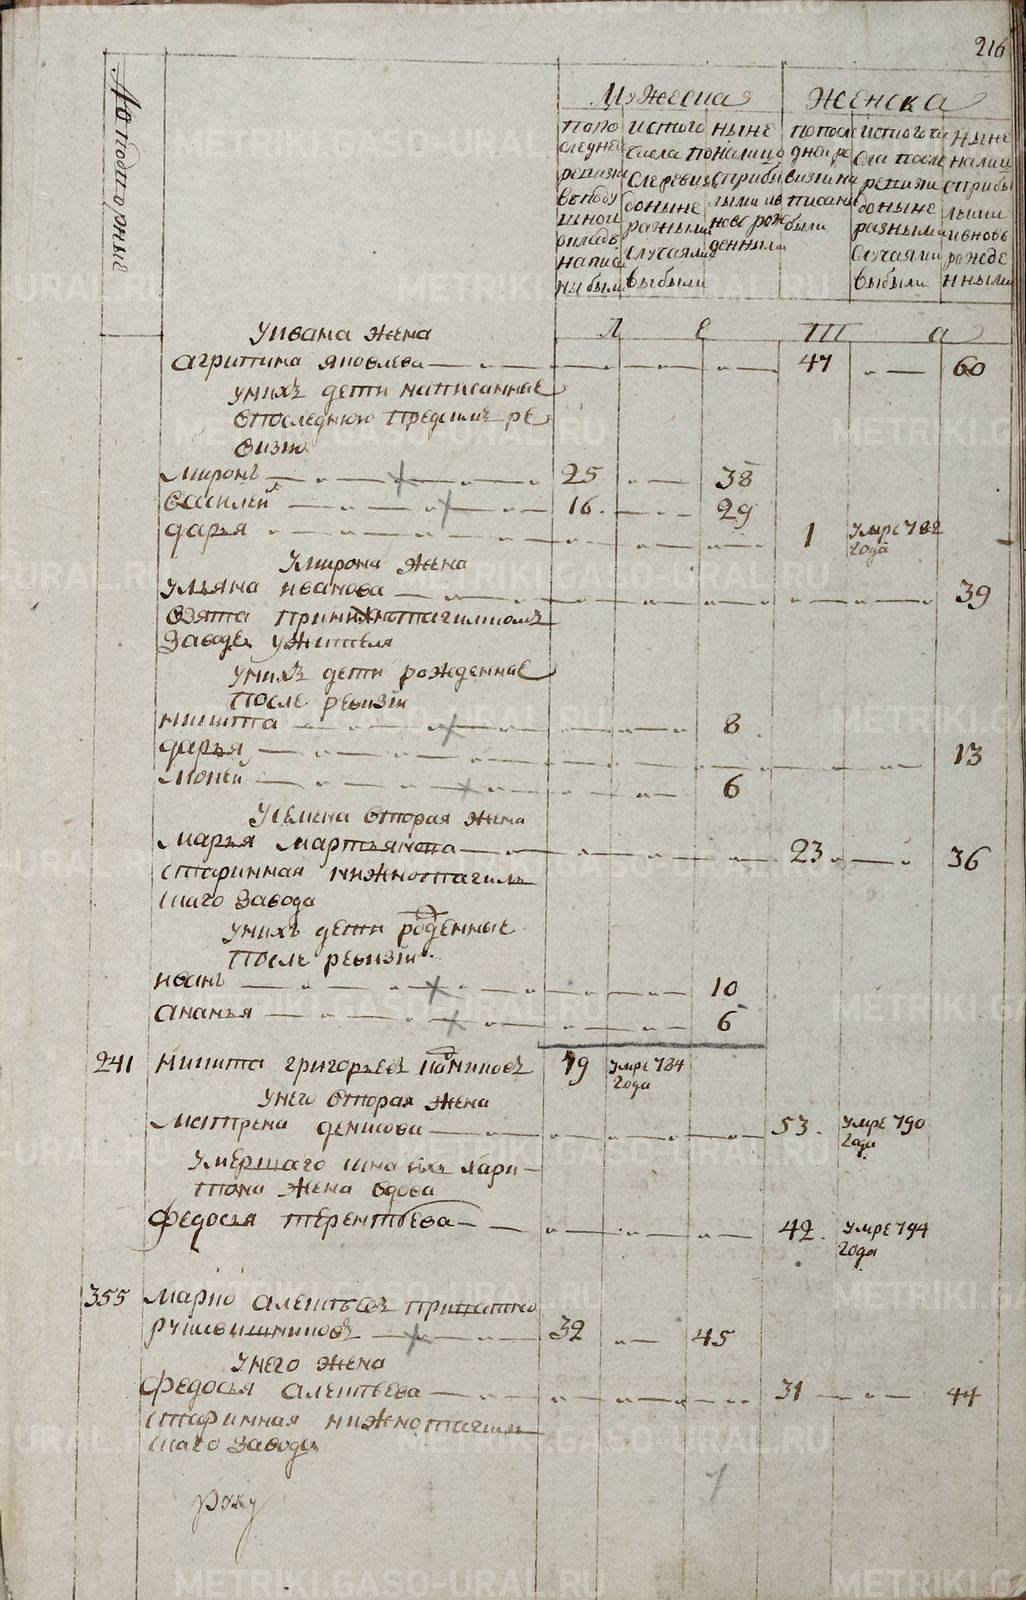 216
Мужеска
Женска
попо
следней
ревизии
в подушной
окладъ
написаны были
ис того
числа по
сле ревизи
до ныне
разными
случаями
выбыли
ныне
на лицо
с прибы
лыми и в
новь рож
денными
по после
дней ре
визии на
писаны
были
ис того чи
сла после
ревизии
до ныне
разными
случаями
выбыли
ныне
на лицо
с прибы
лыми
и вновь
рожде
нными
Л
е
Т
а
У ивана жена
агрипина яковлева 47 60
у нихъ дети написанные
в последнюю пред симъ ре
визию
миронъ 25 38
василей 16 29
дарья 1 умре 782
года
У мирона жена
ульяна иванова 39
взята при нижнотагилском
заводе у жителя
у нихъ дети рожденные
после ревизіи
никита 8
дарья 13
мокей 6
У семена вторая жена
марья мартьянова 23 36
старинная нижнотагилъ
ского завода
у нихъ дети рожденные
после ревизіи
иванъ 10
ананья 6
241 никита григорьевъ 79 умре 784
года
у него вторая жена
матрена денисова 53 умре 790
года
умершаго сына ихъ хари
тона жена вдова
федосья терентьева 42 умре 794
года
355 марко алексеевъ
32 45
у него жена
федосья алексеева 31 44
старинная нижнотагил
скаго завода
руку